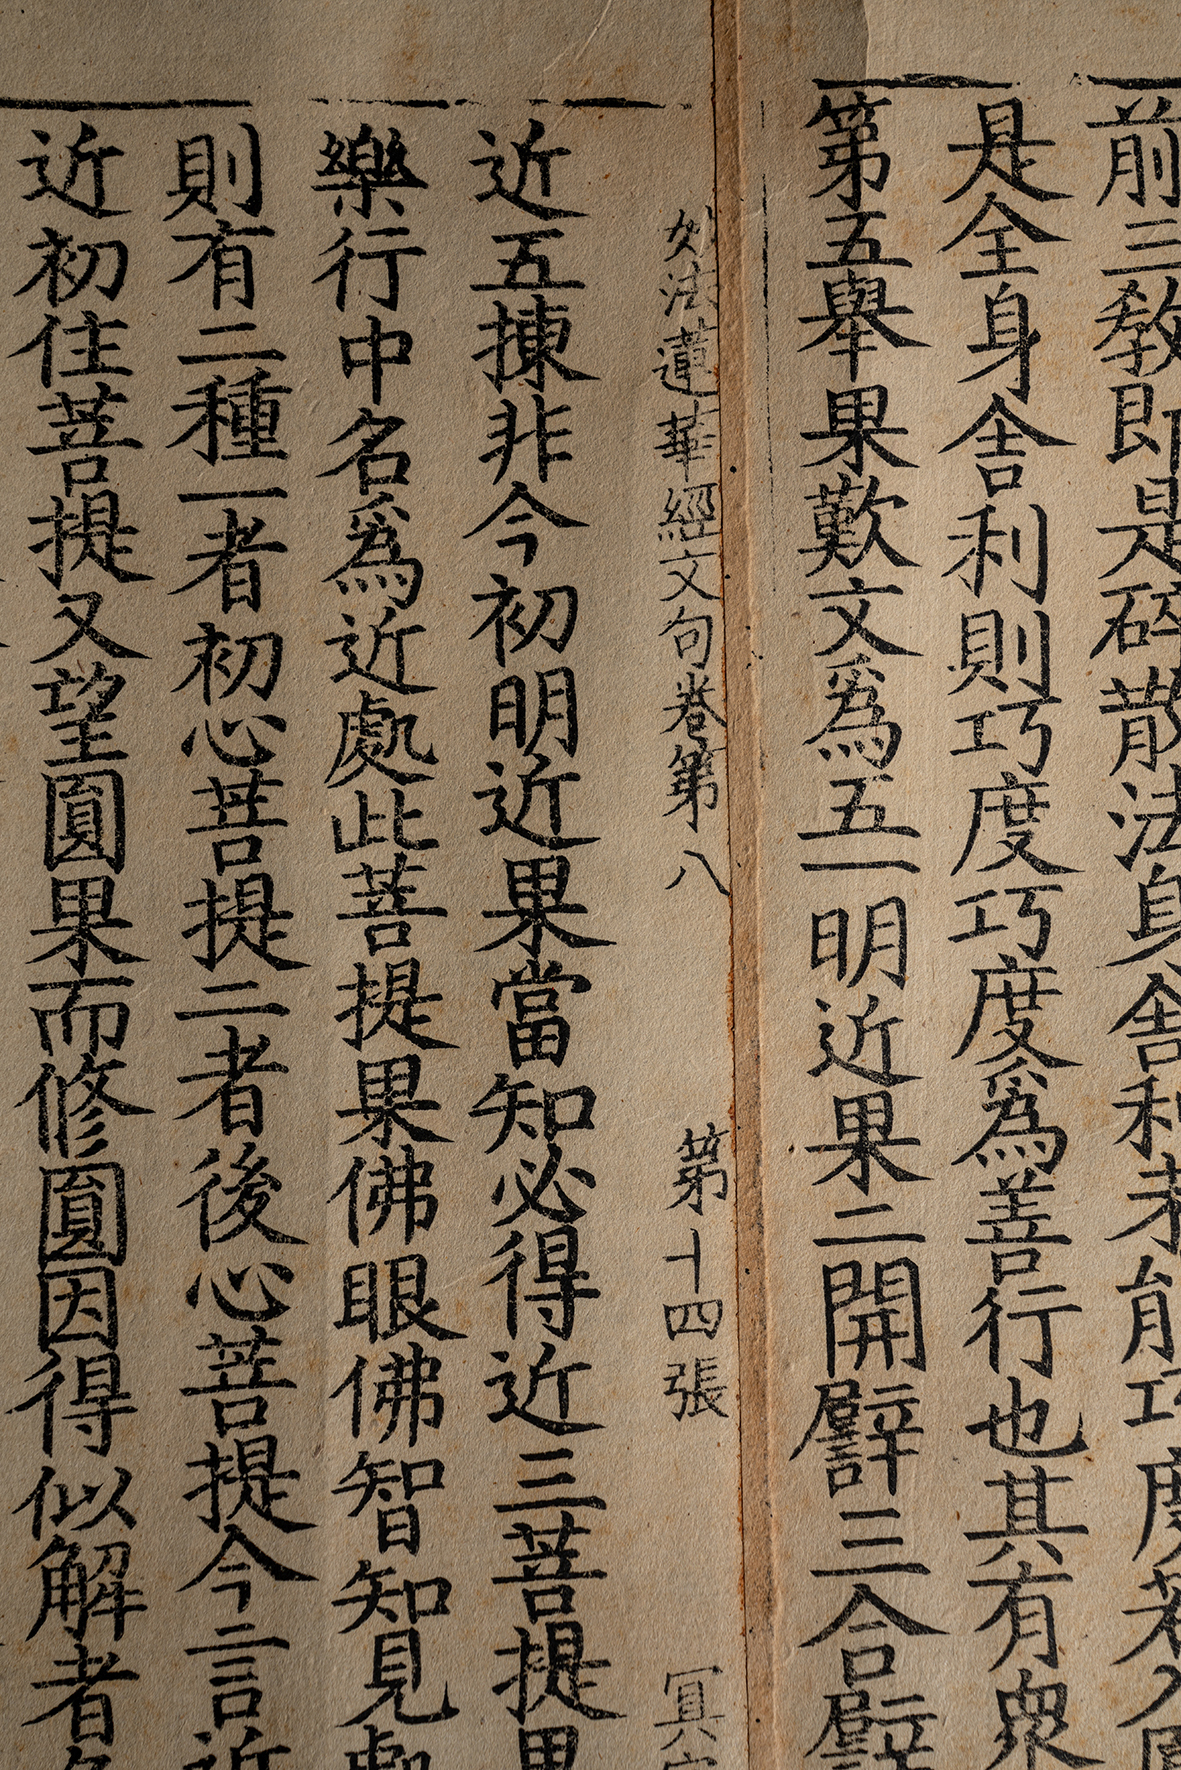 前三教即是碎散法身舍利若能巧度若入圓
是全身舍利則巧度巧度爲善行也其有衆
第五舉果歎文爲五一明近果二開譬三合譬
妙法蓮華經文句卷第八 第十四張 冥
近五揀非今初明近果當知必得近三菩提果
樂行中名爲近處此菩提果佛眼佛智知見
則有二種一者初心菩提二者後心菩提今言近
近初住菩提又望圓果而修圓因得似解者名